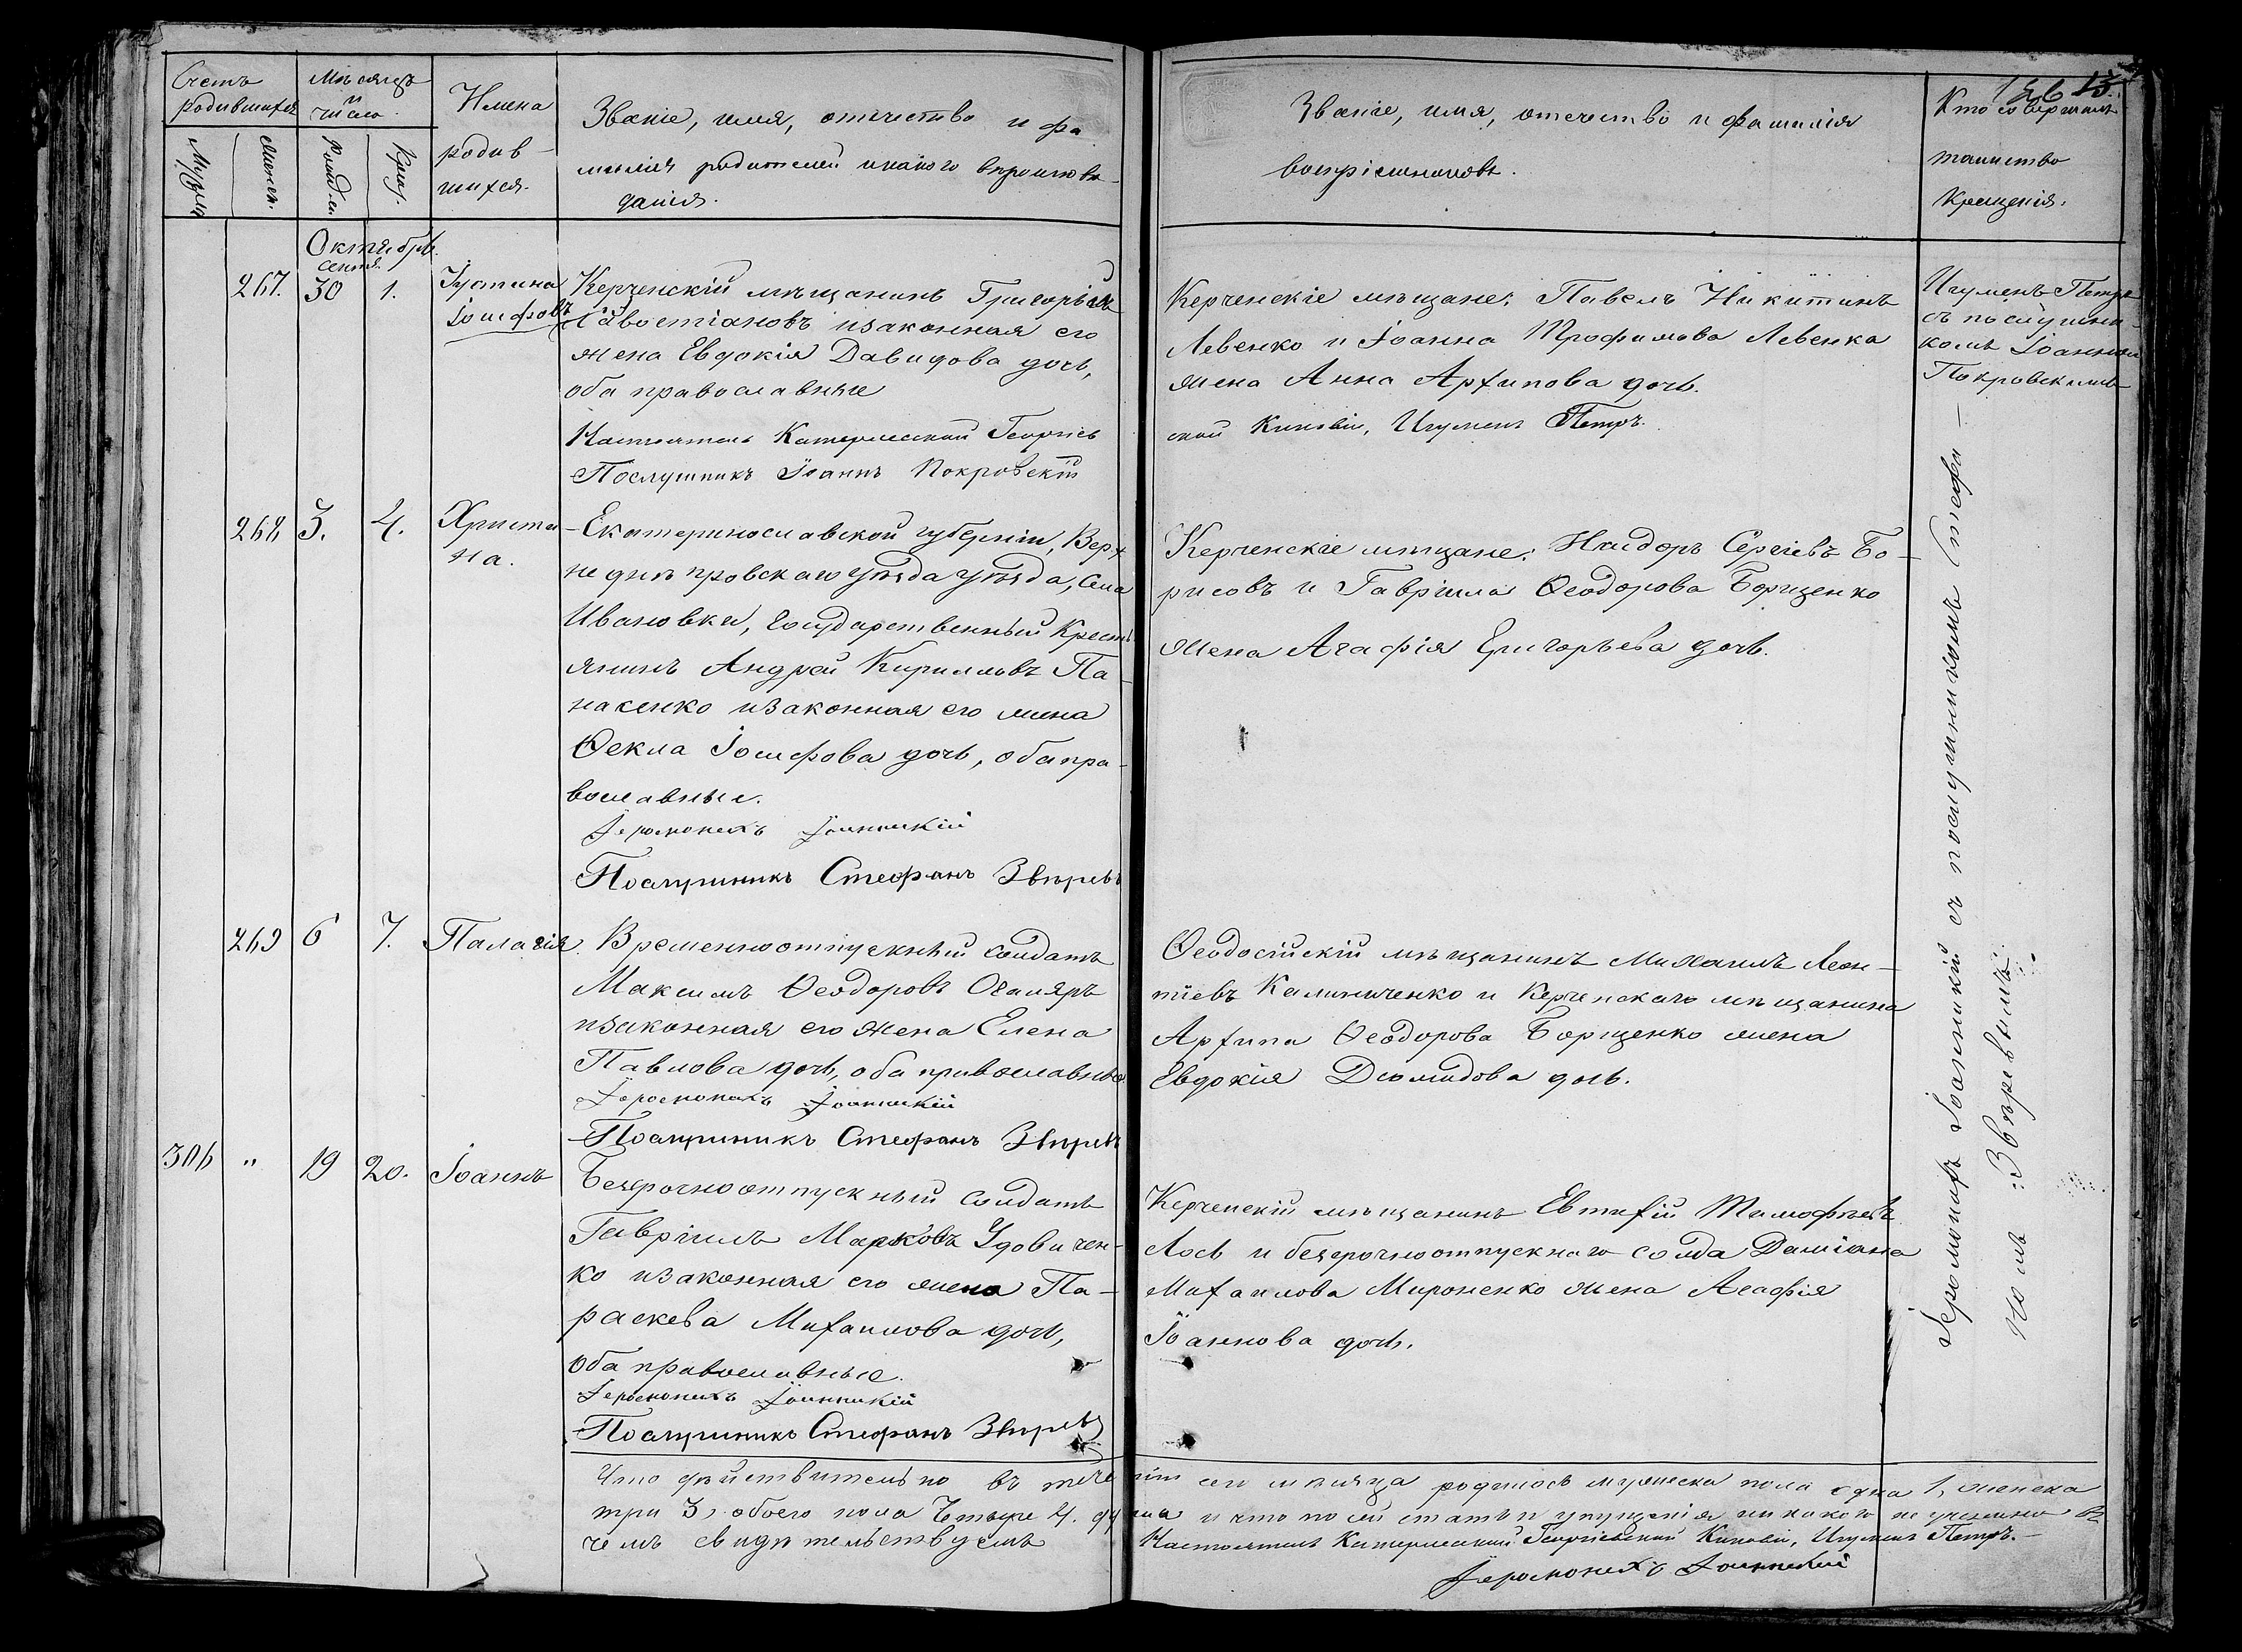 Счетъ
родившихся
Мужск.
Женск.
Мѣсяцъ
и
число.
Рожд.
Крещ.
Имена
родив-
шихся.
Званіе, имя, отчество и фа
милія родителей и какого вѣроисповѣ-
данія.
Званіе, имя, отчество и фамилія
воспріемниковъ.
Кто совершалъ
таинство
крещенія.
Октябрь.
сентя.
267. 30 1. Іустина
Керченскій мѣщанинъ Григорій
Савостіановъ и законная его
жена Евдокія Давидова дочь,
оба православные
Настоятель Катерлесской Георгіев
Послушникъ Іоаннъ Покровскій
Керченскіе мѣщане: Павелъ Никитинъ
Левенко и Іоанна Трофимова Левенка
жена Анна Архипова дочь.
ской Киновіи, Игуменъ Петръ.
Игуменъ Петръ
съ послушни-
комъ Іоанномъ
Покровскимъ
268 3. 4. Христи-
на.
Екатеринославской губерніи, Верх
неднѣпровскаго уѣзда уѣзда, села
Ивановки, государственный кресть
янинъ Андрей Кирилловъ Па-
насенко и законная его жена
Ѳекла Іосифова дочь, оба пра-
вославные.
Іеромонахъ Іоанникій
Послушникъ Стефанъ Звѣревъ
Керченскіе мѣщане: Исидоръ Сергіевъ Бо-
рисовъ и Гавріила Ѳеодорова Борщенко
жена Агафія Григорьева дочь.
269 6 7. Палагія
Временноотпускный солдатъ
Максимъ Ѳеодоровъ
и законная его жена Елена
Павлова дочь, оба православные
Іеромонахъ Іоанникій
Послушникъ Стефанъ Звѣревъ
Ѳеодосійскій мѣщанинъ Михаилъ Леон-
тіевъ Калиниченко и Керченскаго мѣщанина
Архипа Ѳеодорова Борщенко жена
Евдокія Діомидова дочь.
306 " 19 20. Іоаннъ
Безсрочноотпускный солдатъ
Гавріилъ Марковъ Удовичен-
ко и законная его жена Па-
раскева Михаилова дочь,
оба православные.
Іеромонахъ Іоанникій
Послушникъ Стефанъ Звѣревъ
Керченскій мѣщанинъ Евтихій Тимофѣевъ
Лось и безсрочноотпускнаго солда Даміана
Михаилова Мироненко жена Агафія
Іоаннова дочь.
Іеромонахъ Іоанникій съ послушникомъ Стефа-
номъ Звѣревымъ.
Что дѣйствительно въ теченіи сего мѣсяца родилось мужеска пола одна 1, женска
три 3, обоего пола четыре 4. душа и что по сей статьи упущенія никакого не учинено въ
чемъ свидѣтельствуемъ Настоятель Катерлесской Георгіевской Киновіи, Игуменъ Петръ.
Іеромонахъ Іоанникій